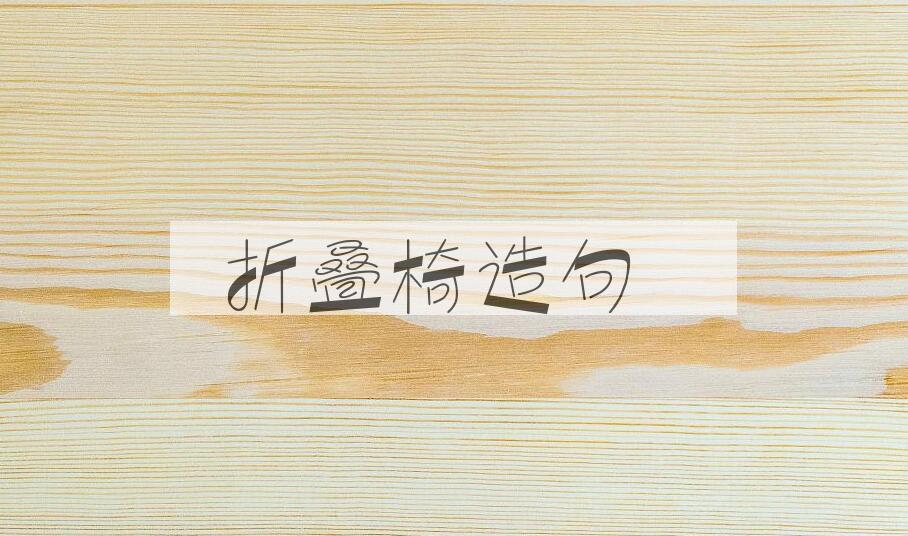 折叠椅造句